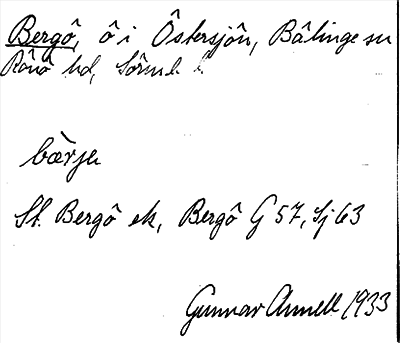 Bergö, ö i Östersjön, Bälinge sn
Rönö hd, Sörml. l.
bærje
St. Bergö ek, Bergö G 57, Sj 63
Gunnar Annell 1933